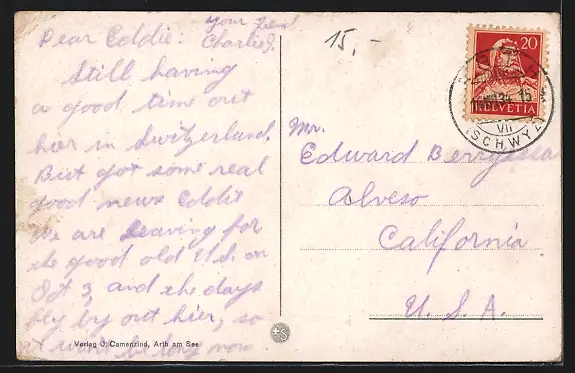 Dear Eddie: your friend
Charlie J.
Still having
a good time out
hier in Switzerland.
But got some real
good news Eddie
We are leaving for
the good old U.S. on
Oct 3, and the days
fly by out hier, so
I wont be long now
Verlag J. Camenzind, Arth am See
15,-
20
HELVETIA
VII
(SCHWYZ)
Mr.
Edward
Alveso
California
U. S. A.